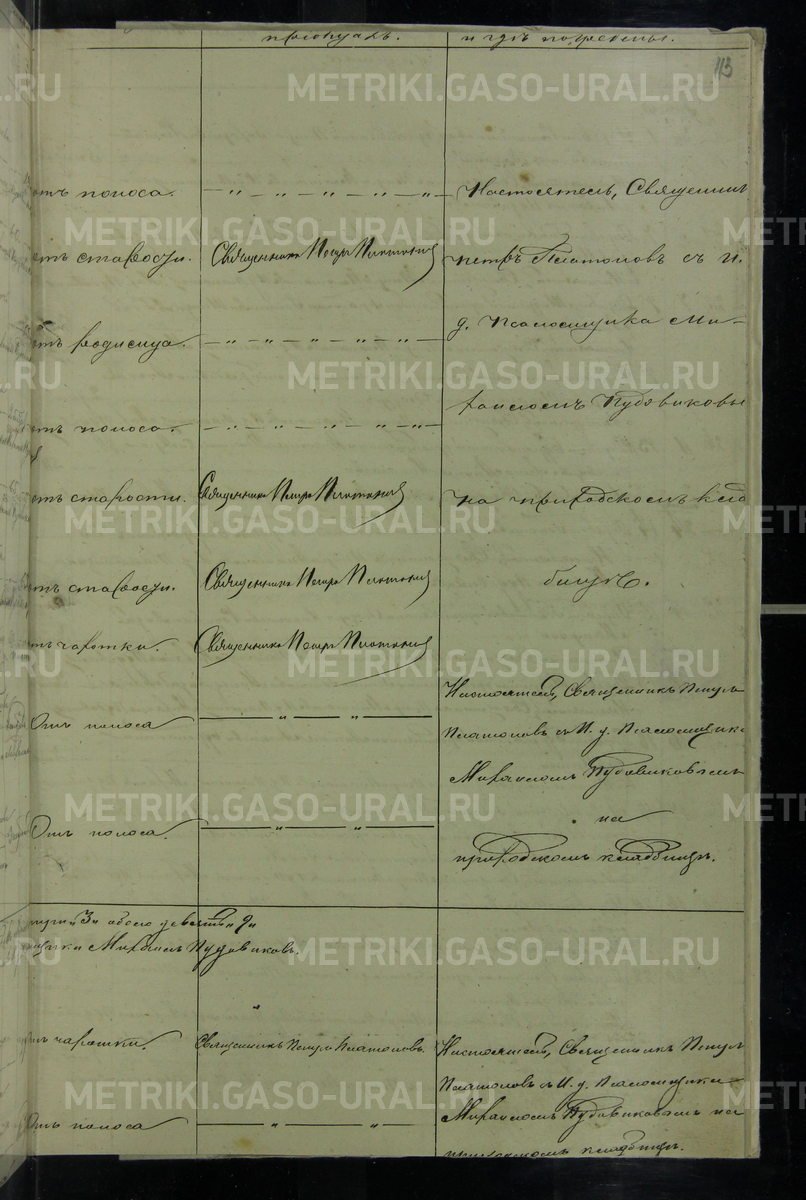 приобщалъ.
и гдѣ погребены.
113
отъ поноса.
Настоятель, Священник
отъ старости.
Священникъ Петръ Платоновъ
Петръ Платоновъ съ И.
отъ родимца.
д. Псаломщика Ми-
отъ поноса.
хаиломъ Пудовиковы
отъ старости.
Священникъ Петръ Платоновъ
на приходскомъ клад
отъ старости.
Священникъ Петръ Платоновъ
бищѣ.
отъ чахотки.
Священникъ Петръ Платоновъ
Настоятель, Священникъ Петръ
Отъ поноса
Платоновъ съ И. д. Псаломщика
Михаиломъ Пудовиковымъ
на
Отъ поноса.
приходскомъ кладбищѣ.
"3" обоего девять "9"
Михаилъ Пудовиковъ.
отъ чахотки.
Священникъ Петръ Платоновъ.
Настоятель, Священникъ Петръ
Платоновъ съ И. д. Псаломщика
Михаиломъ Пудовиковымъ на
Отъ поноса
приходскомъ кладбищѣ.
METRIKI.GASO-URAL.RU